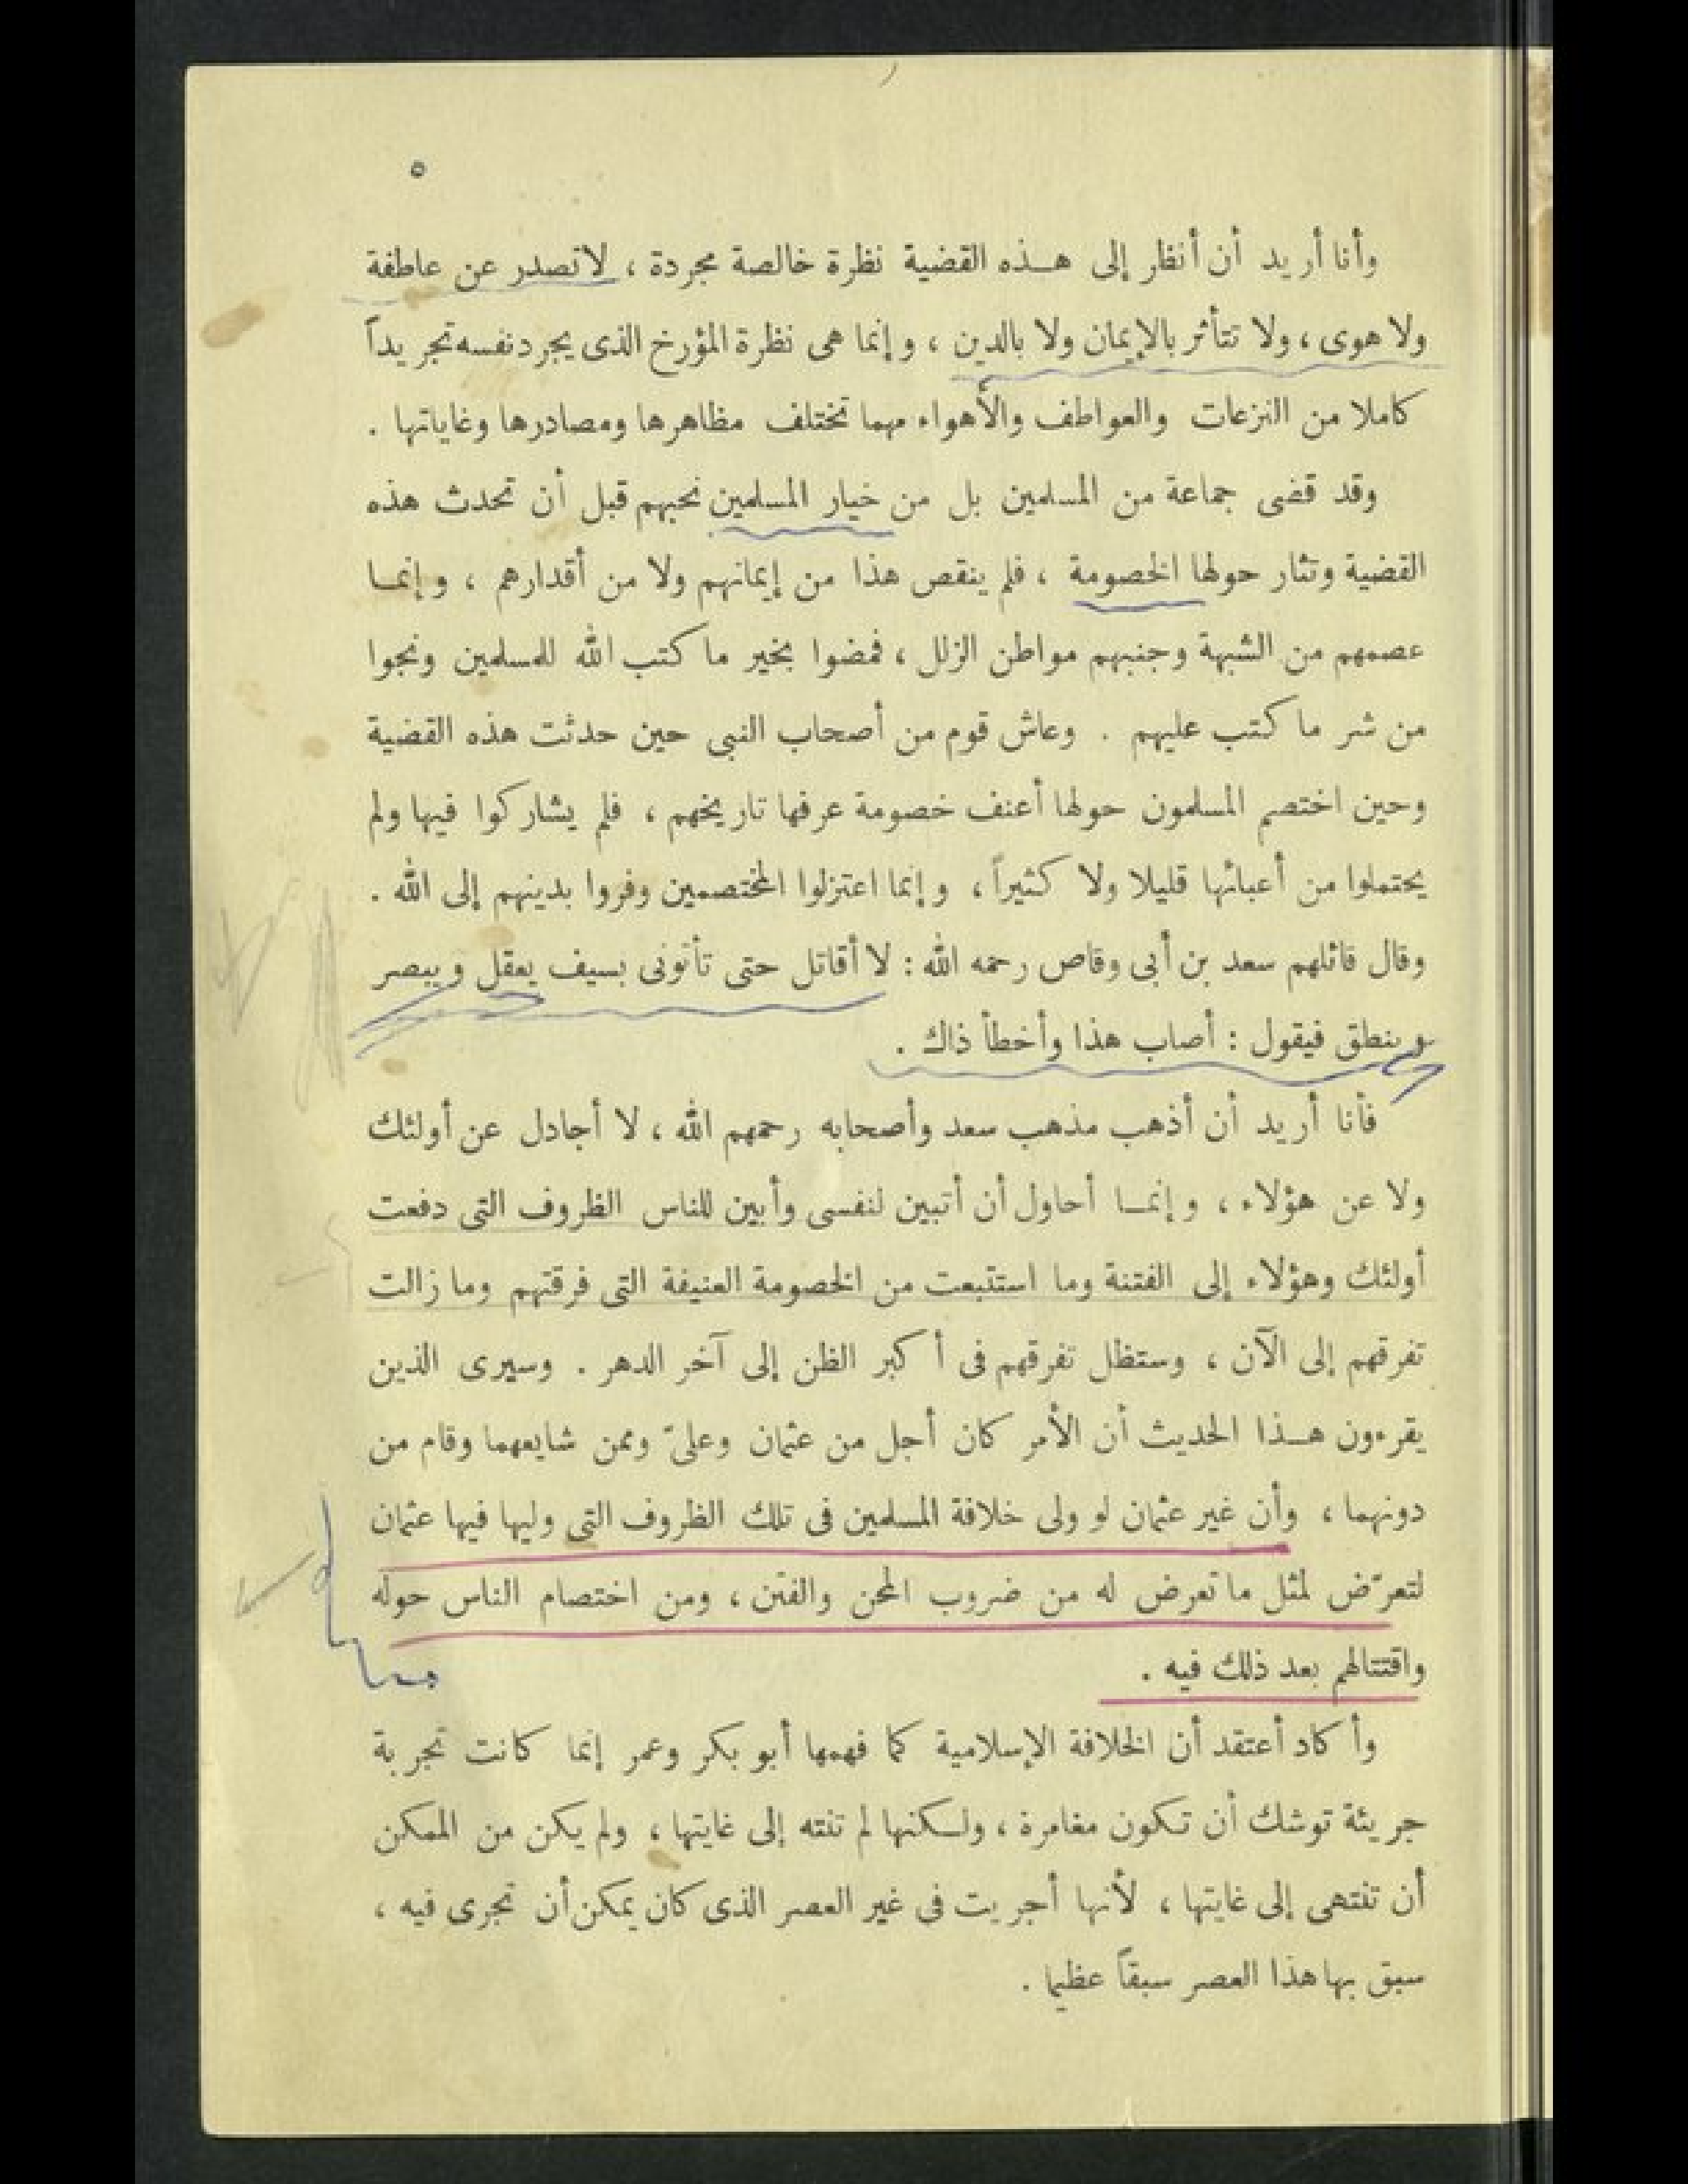 ٥
وأنا أريد أن أنظر إلى هذه القضية نظرة خالصة مجردة ، لا تصدر عن عاطفة
ولا هوى ، ولا تتأثر بالإيمان ولا بالدين ، وإنما هى نظرة المؤرخ الذى يجرد نفسه تجريداً
كاملا من النزعات والعواطف والأهواء مهما تختلف مظاهرها ومصادرها وغاياتها .
وقد قضى جماعة من المسلمين بل من خيار المسلمين نحبهم قبل أن تحدث هذه
القضية وتثار حولها الخصومة ، فلم ينقص هذا من إيمانهم ولا من أقدارهم ، وإنما
عصمهم من الشبهة وجنبهم مواطن الزلل ، فمضوا بخير ما كتب الله للمسلمين ونجوا
من شر ما كتب عليهم . وعاش قوم من أصحاب النبى حين حدثت هذه القضية
وحين اختصم المسلمون حولها أعنف خصومة عرفها تاريخهم ، فلم يشاركوا فيها ولم
يحتملوا من أعبائها قليلا ولا كثيراً ، وإنما اعتزلوا المختصمين وفروا بدينهم إلى الله .
وقال قائلهم سعد بن أبى وقاص رحمه الله : لا أقاتل حتى تأتونى بسيف يعقل ويبصر
وينطق فيقول : أصاب هذا وأخطأ ذاك .
فأنا أريد أن أذهب مذهب سعد وأصحابه رحمهم الله ، لا أجادل عن أولئك
ولا عن هؤلاء ، وإنما أحاول أن أتبين لنفسى وأبين للناس الظروف التى دفعت
أولئك وهؤلاء إلى الفتنة وما استتبعت من الخصومة العنيفة التى فرقتهم وما زالت
تفرقهم إلى الآن ، وستظل تفرقهم فى أكبر الظن إلى آخر الدهر . وسيرى الذين
يقرءون هذا الحديث أن الأمر كان أجل من عثمان وعلىّ وممن شايعهما وقام من
دونهما ، وأن غير عثمان لو ولى خلافة المسلمين فى تلك الظروف التى وليها فيها عثمان
لتعرّض لمثل ما تعرض له من ضروب المحن والفتن ، ومن اختصام الناس حوله
واقتتالهم بعد ذلك فيه .
وأكاد أعتقد أن الخلافة الإسلامية كما فهمها أبو بكر وعمر إنما كانت تجربة
جريئة توشك أن تكون مغامرة ، ولكنها لم تنته إلى غايتها ، ولم يكن من الممكن
أن تنتهى إلى غايتها ، لأنها أجريت فى غير العصر الذى كان يمكن أن تجرى فيه ،
سبق بها هذا العصر سبقاً عظيما .